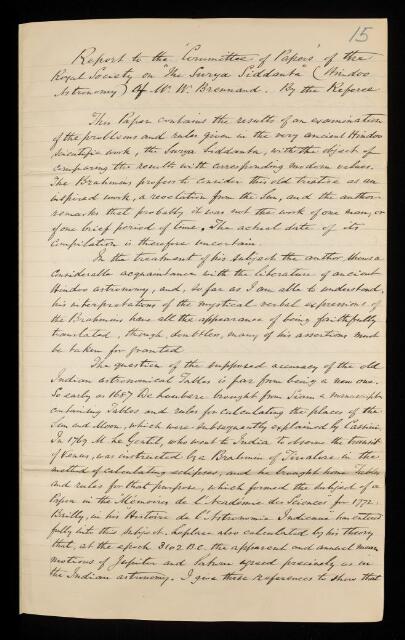 15
Report to the 'Committee of Papers' of the
Royal Society on "The Surya Siddanta" (Hindoo
Astronomy) of Mr W. Brennand. By the Referee
This Paper contains the results of an examination
of the problems and rules given in the very ancient Hindoo
scientific work, the Surya Siddanta, with the object of
comparing the results with corresponding modern values.
The Brahmins profess to consider this old treatise as an
inspired work, a revelation from the Sun, and the author
remarks that probably it was not the work of one man, or
of one brief period of time. The actual date of its
compilation is therefore uncertain.
In the treatment of his subject the author shews a
considerable acquaintance with the literature of ancient
Hindoo astronomy, and, so far as I am able to understand,
his interpretations of the mystical verbal expressions of
the Brahmins have all the appearance of being faithfully
translated, though, doubtless, many of his assertions must
be taken for granted
The question of the supposed accuracy of the old
Indian astronomical Tables is far from being a new one.
So early as 1687 De La Loubere brought from Siam a manuscript
containing Tables and rules for calculating the places of the
Sun and Moon, which were subsequently explained by Cassini.
In 1769 M. le Gentil, who went to India to observe the transit
of Venus, was instructed by a Brahmin of Tirvalore in the
method of calculating eclipses, and he brought home Tables
and rules for that purpose, which formed the subject of a
Paper in the "Mémoires de l'Académie des Sciences" for 1772.
Bailly, in his Histoire de l'Astronomie Indienne has entered
fully into this subject. Laplace also calculated by his theory
that, at the epoch 3102 B.C. the apparent and annual mean
motions of Jupiter and Saturn agreed precisely as in
the Indian astronomy. I give these references to show that